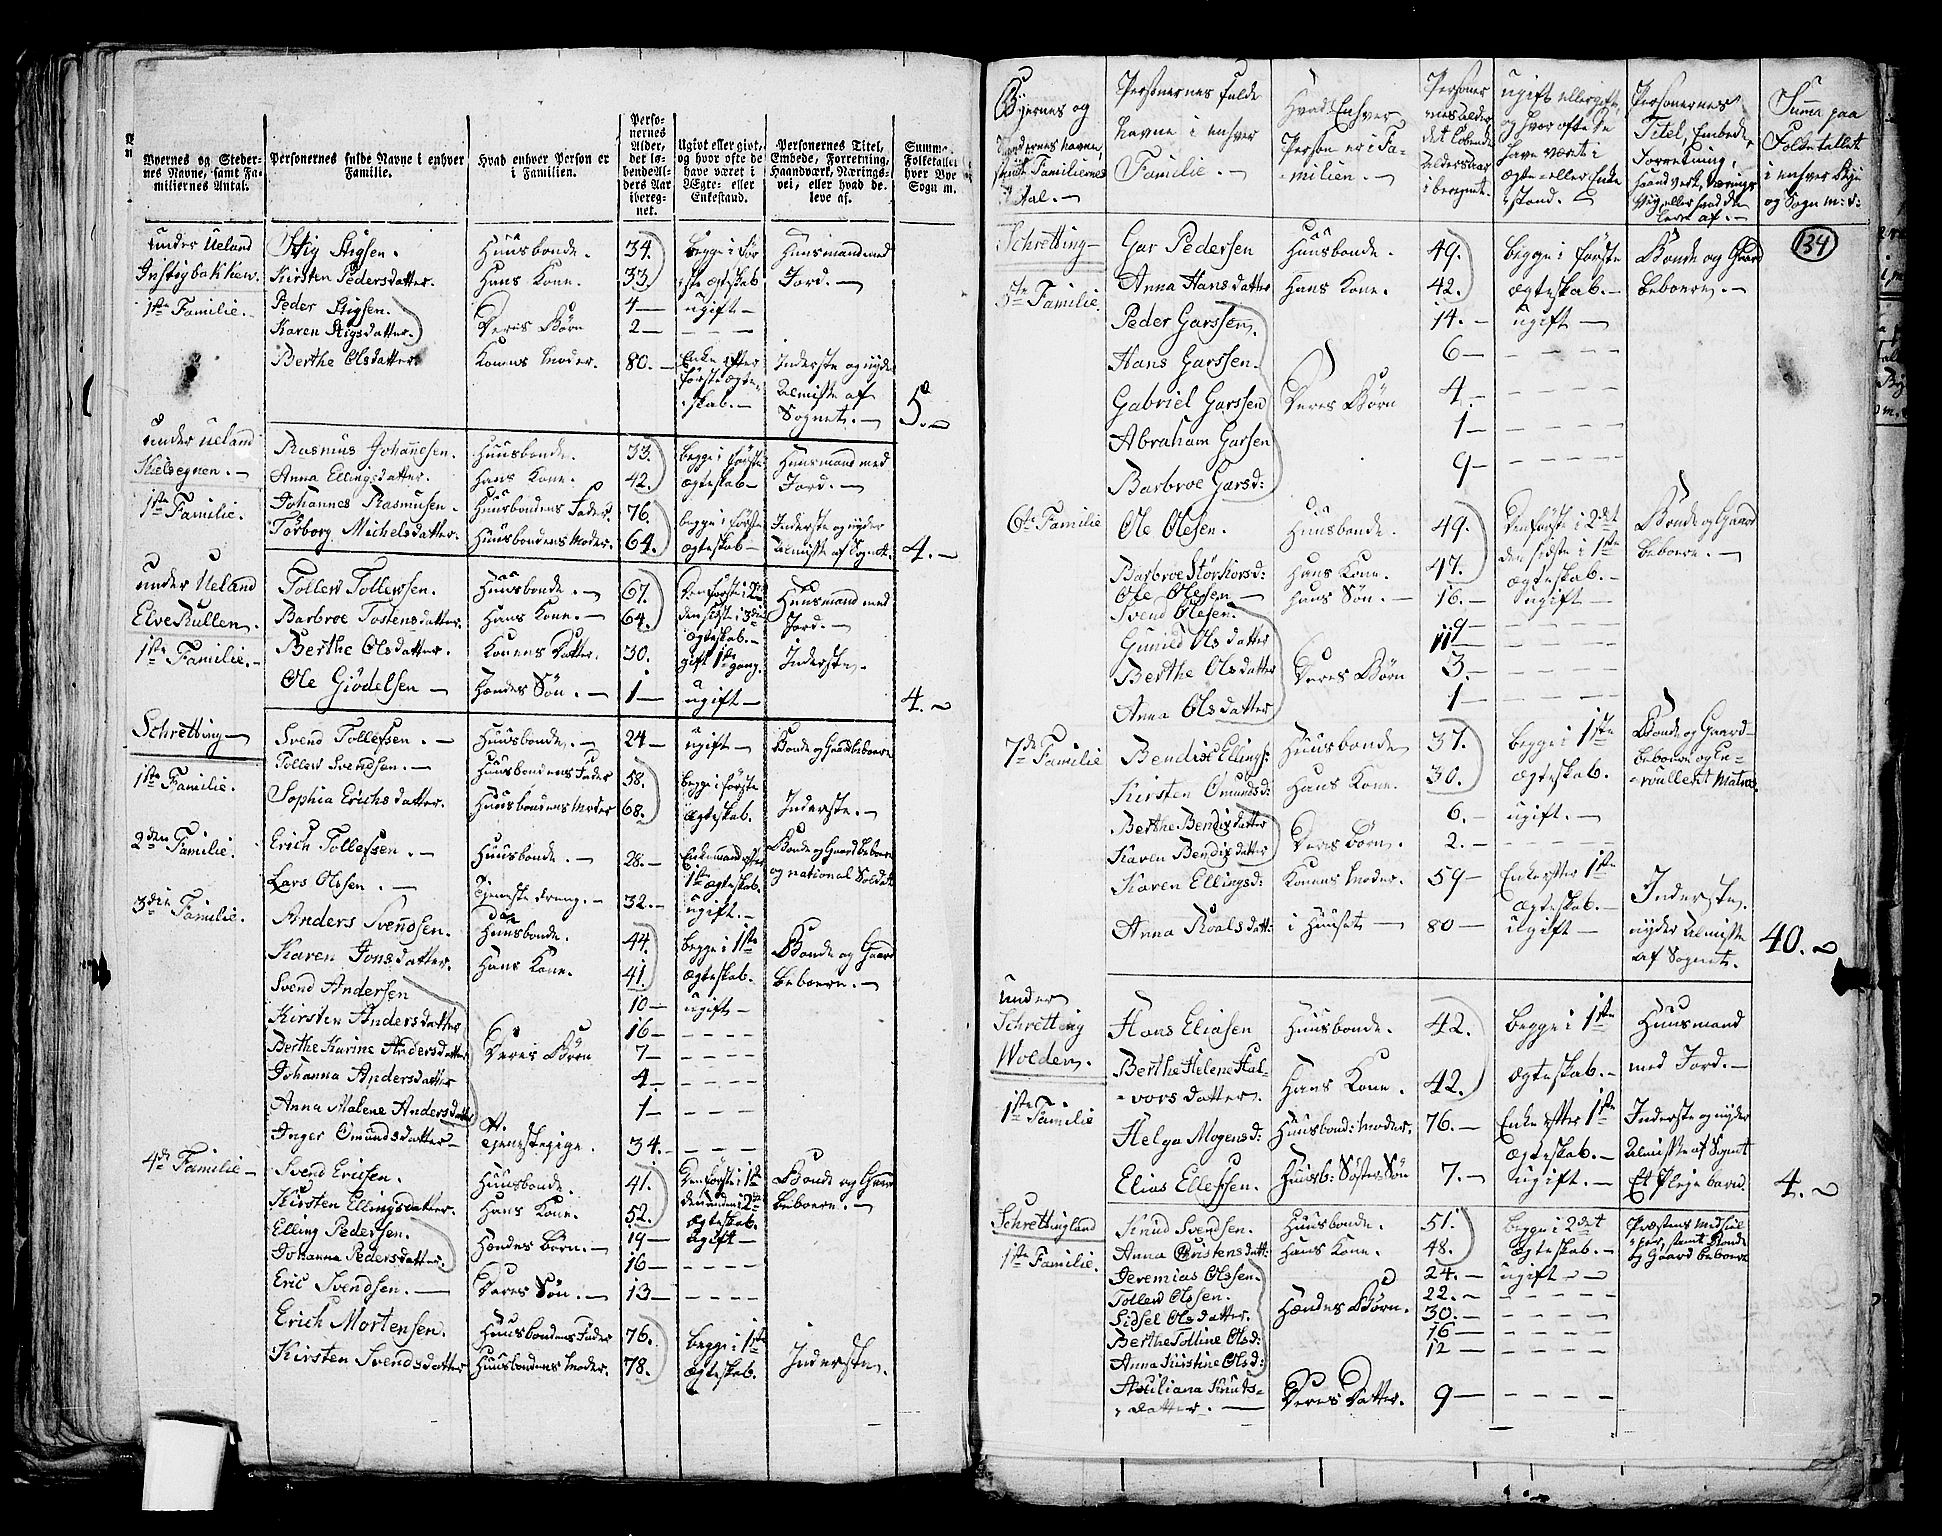 Byernes og Steder-
nes Navne, samt Fa-
miliernes Antal.
Personernes fulde Navne i enhver
Familie.
Hvad enhver Person er
i Familien.
Perso-
nernes
Alder,
der lø-
bende Al-
ders Aar
ibereg-
net.
Ugivt eller givt,
og hvor ofte de
have været i
Ægte- eller
Enkestand.
Personernes Titel,
Embede, Forretning,
Haandværk, Nærings-
vei, eller hvad de
leve af.
Summa
Folketallet
hver Bye
Sogn m.
under Ueland
1ste Familie.
Stig Stigsen. Huusbonde. 34. begge i før- Huusmand med
Kirsten Pedersdatter. Hans Kone. 33. ste ægteskab Jord.
Peder Stigsen. 4 ugift
Karen Stigsdatter. Deres Børn 2
Berthe Olsdatter Konens Moder. 80. Enke efter Inderste og nyder
første ægte- Almisse af
skab. Sognet. 5.
under Ueland
Kielsegnen.
1ste Familie.
Rasmus Johannesen. Huusbonde. 33. begge i første Huusmand med
Anna Ellingsdatter. Hans Kone. 42. ægteskab Jord.
Johannes Rasmusen. Huusbondens Fader. 76. begge i første Inderste og nyder
Torborg Michelsdatter. Huusbondens Moder. 64. ægteskab Almisse af Sognet. 4.
under Ueland
Elve Kullen.
1ste Familie.
Tollew Tollewsen. Huusbonde. 67. den første i 2den Huusmand med
Barbroe Tostensdatter. Hans Kone. 64. den sidste i 3die Jord.
ægteskab.
Berthe Olsdatter. Konens Datter. 30. gift 1ste gang. Inderste.
Ole Giødelsen Hendes Søn. 1 ugift 4.
Schretting
1ste Familie.
Svend Tollefsen. Huusbonde. 24 ugift Bonde og Gaardbeboere
Tollew Svendsen. Huusbondens Fader 58. begge i første
Sophia Erichsdatter. Huusbondens Moder 68. ægteskab. Inderste.
2den Familie.
Erich Tollefsen. Huusbonde. 28. Enkemand efter Bonde og Gaardbeboere
1ste ægteskab. og national Soldat
Lars Olssen. Tieneste dreng. 32. ugift.
3die Familie.
Anders Svendsen. Huusbonde. 44. begge i 1ste Bonde og Gaard
Karen Jonsdatter. Hans Kone. 41. ægteskab. beboere.
Svend Andersen 10 ugift
Kirsten Andersdatter 16
Berthe Karine Andersdatter Deres Børn 7
Johanna Andersdatter 4
Anna Malene Andersdatter 1
Inger Omundsdatter Tienestepige. 34.
4de Familie
Svend Ericsen. Huusbonde. 41. Den første i 1ste Bonde og Gaard
Kirsten Ellingsdatter. Hans Kone. 52. den anden i 2det beboere.
ægteskab.
Elling Pedersen. 19 ugift
Johanna Pedersdatter. Hendes Børn. 16
Eric Svendsen. Deres Søn. 13
Erich Mortensen. Huusbondens Fader 76. begge i 1ste
Kirsten Svendsdatter Huusbondens Moder. 78. ægteskab. Inderste.
Byernes og
Stedernes Navne,
samt Familiernes
Antal.
Personernes fulde
Navne i enhver
Familie.
Hvad Enhver
Person er i Fa-
milien.
Personer
nes Alder
det løbende
Aldersaar
iberegnet.
ugift eller gift,
og hvor ofte de
have været i
ægte- eller Enke
stand.
Personernes
Titel, Embede,
Forretning,
Haandverk, Nærings
vej, eller hvad de
leve af.
Summa paa
Folketallet
i enhver Bye
og Sogn m: v:
134
Schretting
5te Familie.
Gar Pedersen Huusbonde. 49. begge i første Bonde og Gaard
Anna Hansdatter Hans Kone. 42. ægteskab. beboere.
Peder Garssen. 14. ugift
Hans Garssen. 6
Gabriel Garssen Deres Børn 4.
Abraham Garsen 1
Barbroe Garsd: 9
6te Familie
Ole Olesen. Huusbonde. 49. Den første i 2det Bonde og Gaard
Barbroe Storkorsd: Hans Kone. 47. den sidste i 1ste beboere.
ægteskab.
Ole Olesen Hans Søn. 16. ugift
Svend Olesen 9
Gunild Olsdatter 11
Berthe Olsdatter Deres Børn 3.
Anna Olsdatter 1
7de Familie
Bendix Ellings: Huusbonde 37. begge i 1ste Bonde og Gaard-
Kirsten Omundsd: Hans Kone. 30. ægteskab. beboere og En-
roulleret Matros.
Berthe Bendixdatter 6. ugift.
Karen Bendixdatter Deres børn. 2.
Karen Ellingsd: Konens Moder. 59 Enke efter 1ste Inderste.
ægteskab.
Anna Roalsdatt: i Huuset 80 ugift nyder Almisse
af Sognet. 40.
under
Schretting
Wolden.
1ste Familie
Hans Eliasen Huusbonde. 42. begge i 1ste Huusmand
Berthe Helene Hal-
vorsdatter. Hans Kone. 42. ægteskab. med Jord.
Helga Mogensd: Huusbond: Moder. 76. Enke efter 1ste Inderste og nyder
ægteskab. Almisse af Sognet
Elias Ellefsen. Huusb: Søster Søn 7. ugift. Et Plejebarn. 4.
Schrettingland
1ste Familie.
Knud Svendsen. Huusbonde. 51. begge i 2det Præstens Medhiel-
Anna Christensdatt: Hans Kone. 48. ægteskab. per, samt Bonde
og Gaardbeboere
Jeremias Olssen. 24. ugift
Tollew Olssen. 22.
Sidsel Olsdatter. Hendes Børn. 30.
Berthe Tolline Olsd: 16
Anna Kirstine Olsd: 12
Knuds-
datter. Deres Datter. 9